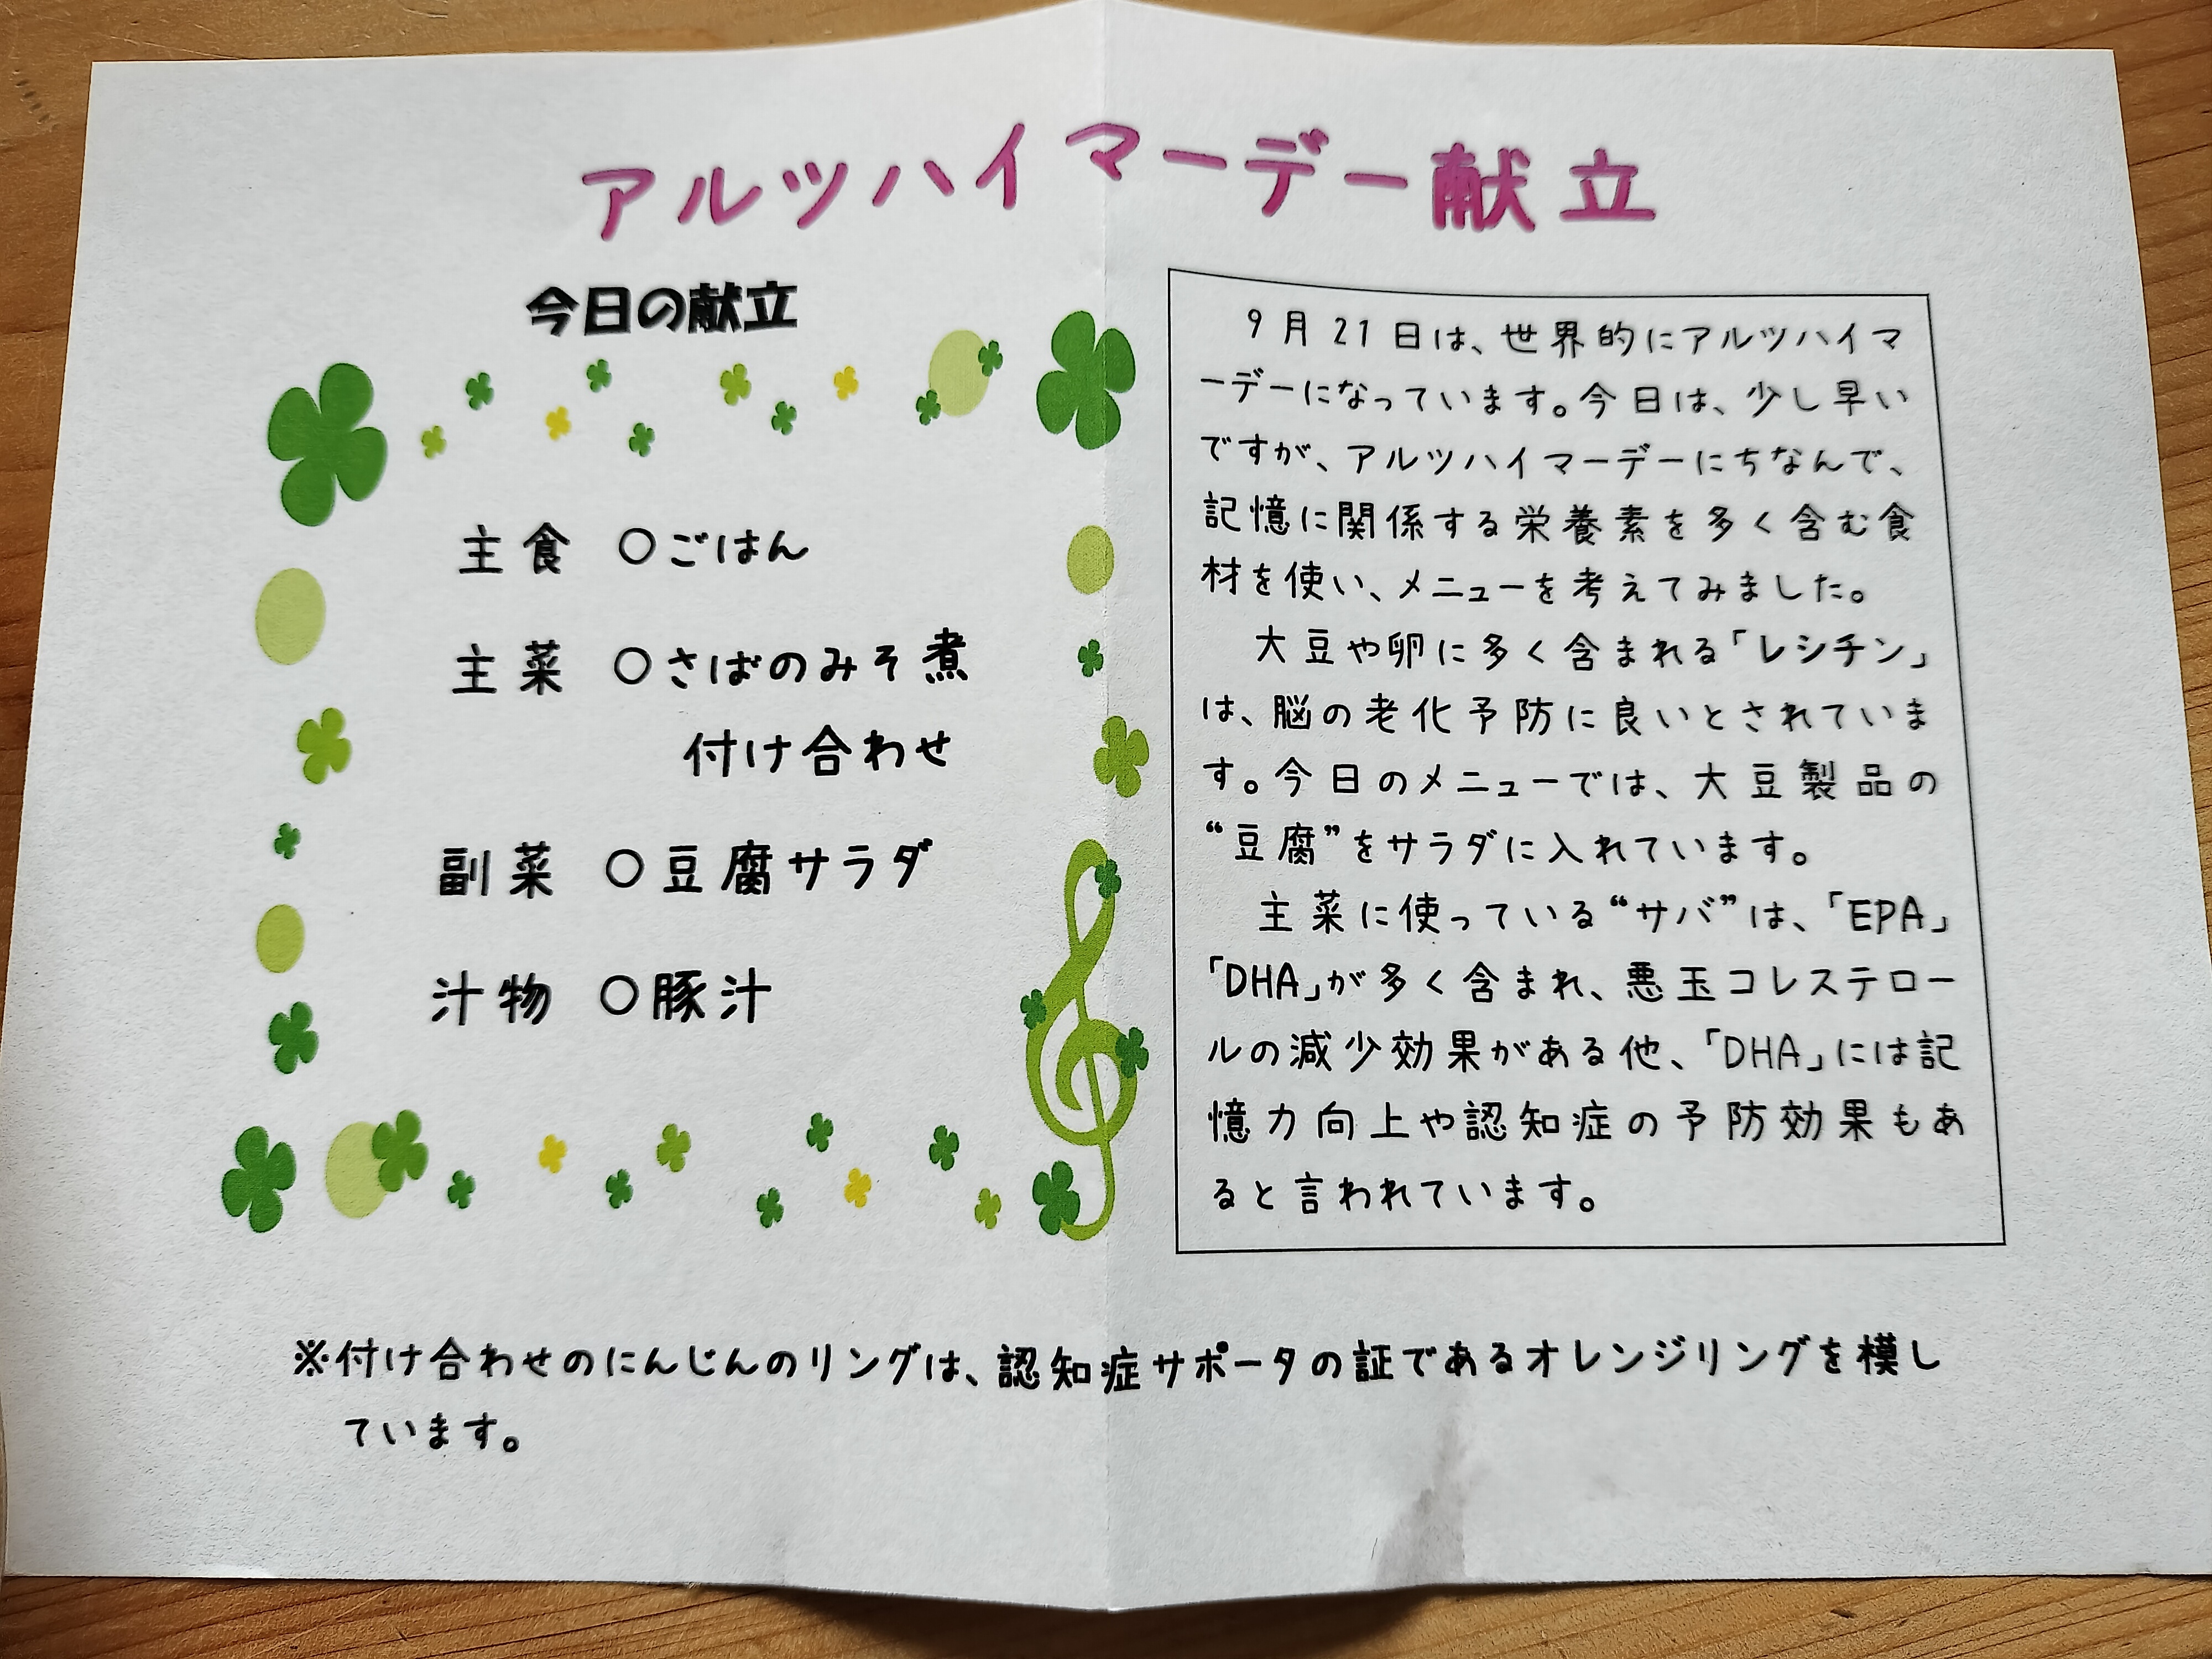 アルツハイマーデー献立
今日の献立
主食 ○ごはん
主菜 ○さばのみそ煮
付け合わせ
副菜 ○豆腐サラダ
汁物 ○豚汁
9月21日は、世界的にアルツハイマ
ーデーになっています。今日は、少し早い
ですが、アルツハイマーデーにちなんで、
記憶に関係する栄養素を多く含む食
材を使い、メニューを考えてみました。
大豆や卵に多く含まれる「レシチン」
は、脳の老化予防に良いとされていま
す。今日のメニューでは、大豆製品の
“豆腐”をサラダに入れています。
主菜に使っている“サバ”は、「EPA」
「DHA」が多く含まれ、悪玉コレステロー
ルの減少効果がある他、「DHA」には記
憶力向上や認知症の予防効果もあ
ると言われています。
※付け合わせのにんじんのリングは、認知症サポータの証であるオレンジリングを模し
ています。